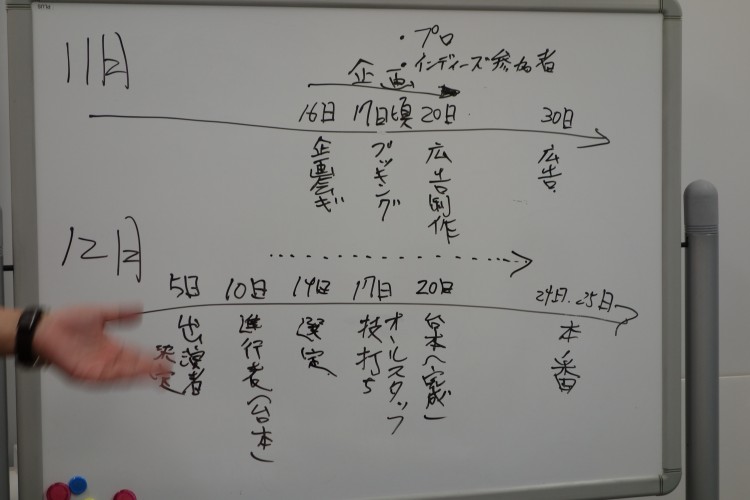 11月
・プロ
・インディーズ参加者
企画
16日 17日頃 20日 30日
企画会ギ
ブッキング
広告制作
広告
12月
5日 10日 14日 17日 20日 24日・25日
出演者
決定
進行者(台本)
選定
オールスタッフ
技打ち
台本(完成)
本番